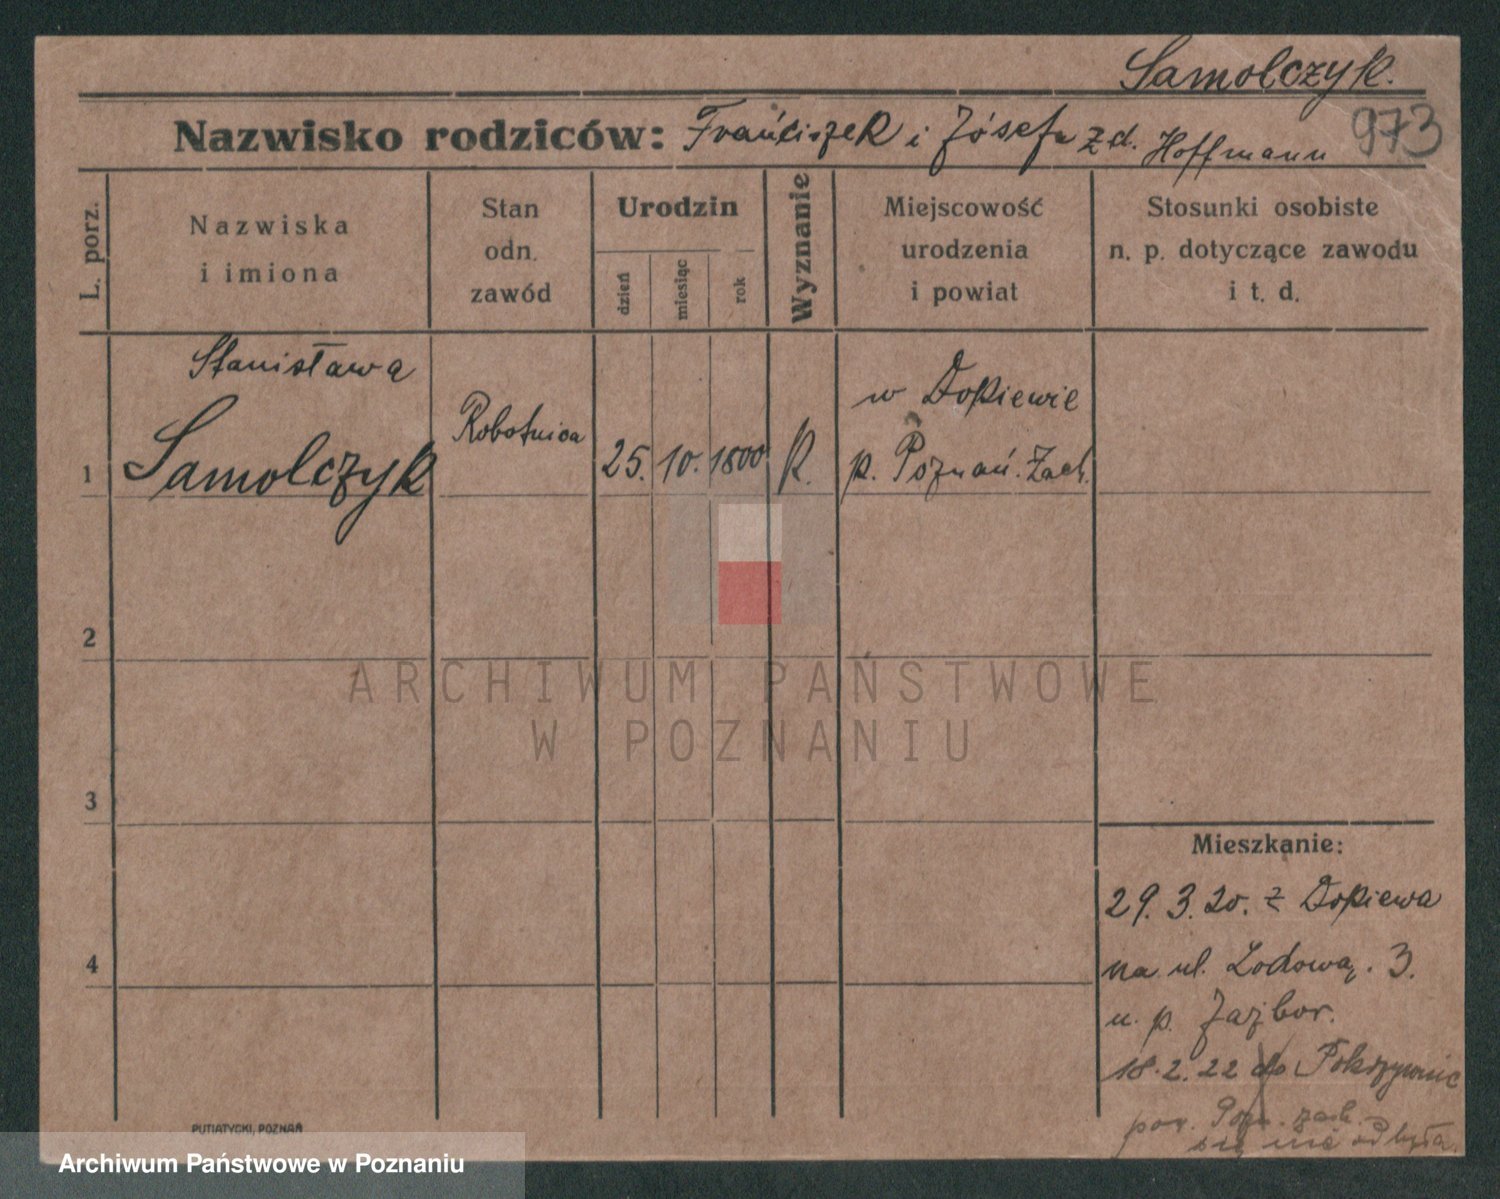 Samolczyk.
973
Nazwisko rodziców: Frańciszek i Józefa z d. Hoffmann
L. porz.
Nazwiska
i imiona
Stan
odn.
zawód
Urodzin
dzień
miesiąc
rok
Wyznanie
Miejscowość
urodzenia
i powiat
Stosunki osobiste
n. p. dotyczące zawodu
i t. d.
1
Stanisława
Samolczyk
Robotnica
25. 10. 1800
K.
w Dopiewie
p. Poznań. Zach.
2
3
4
ARCHIWUM PAŃSTWOWE
W POZNANIU
Mieszkanie:
29. 3. 20. z Dopiewa
na ul. Lodową. 3.
u. p.
18. 2. 22 do Pokrzywnic
pow. Pozn. zach.
się nie odbyła.
PUTIATYCKI, POZNAŃ
Archiwum Państwowe w Poznaniu